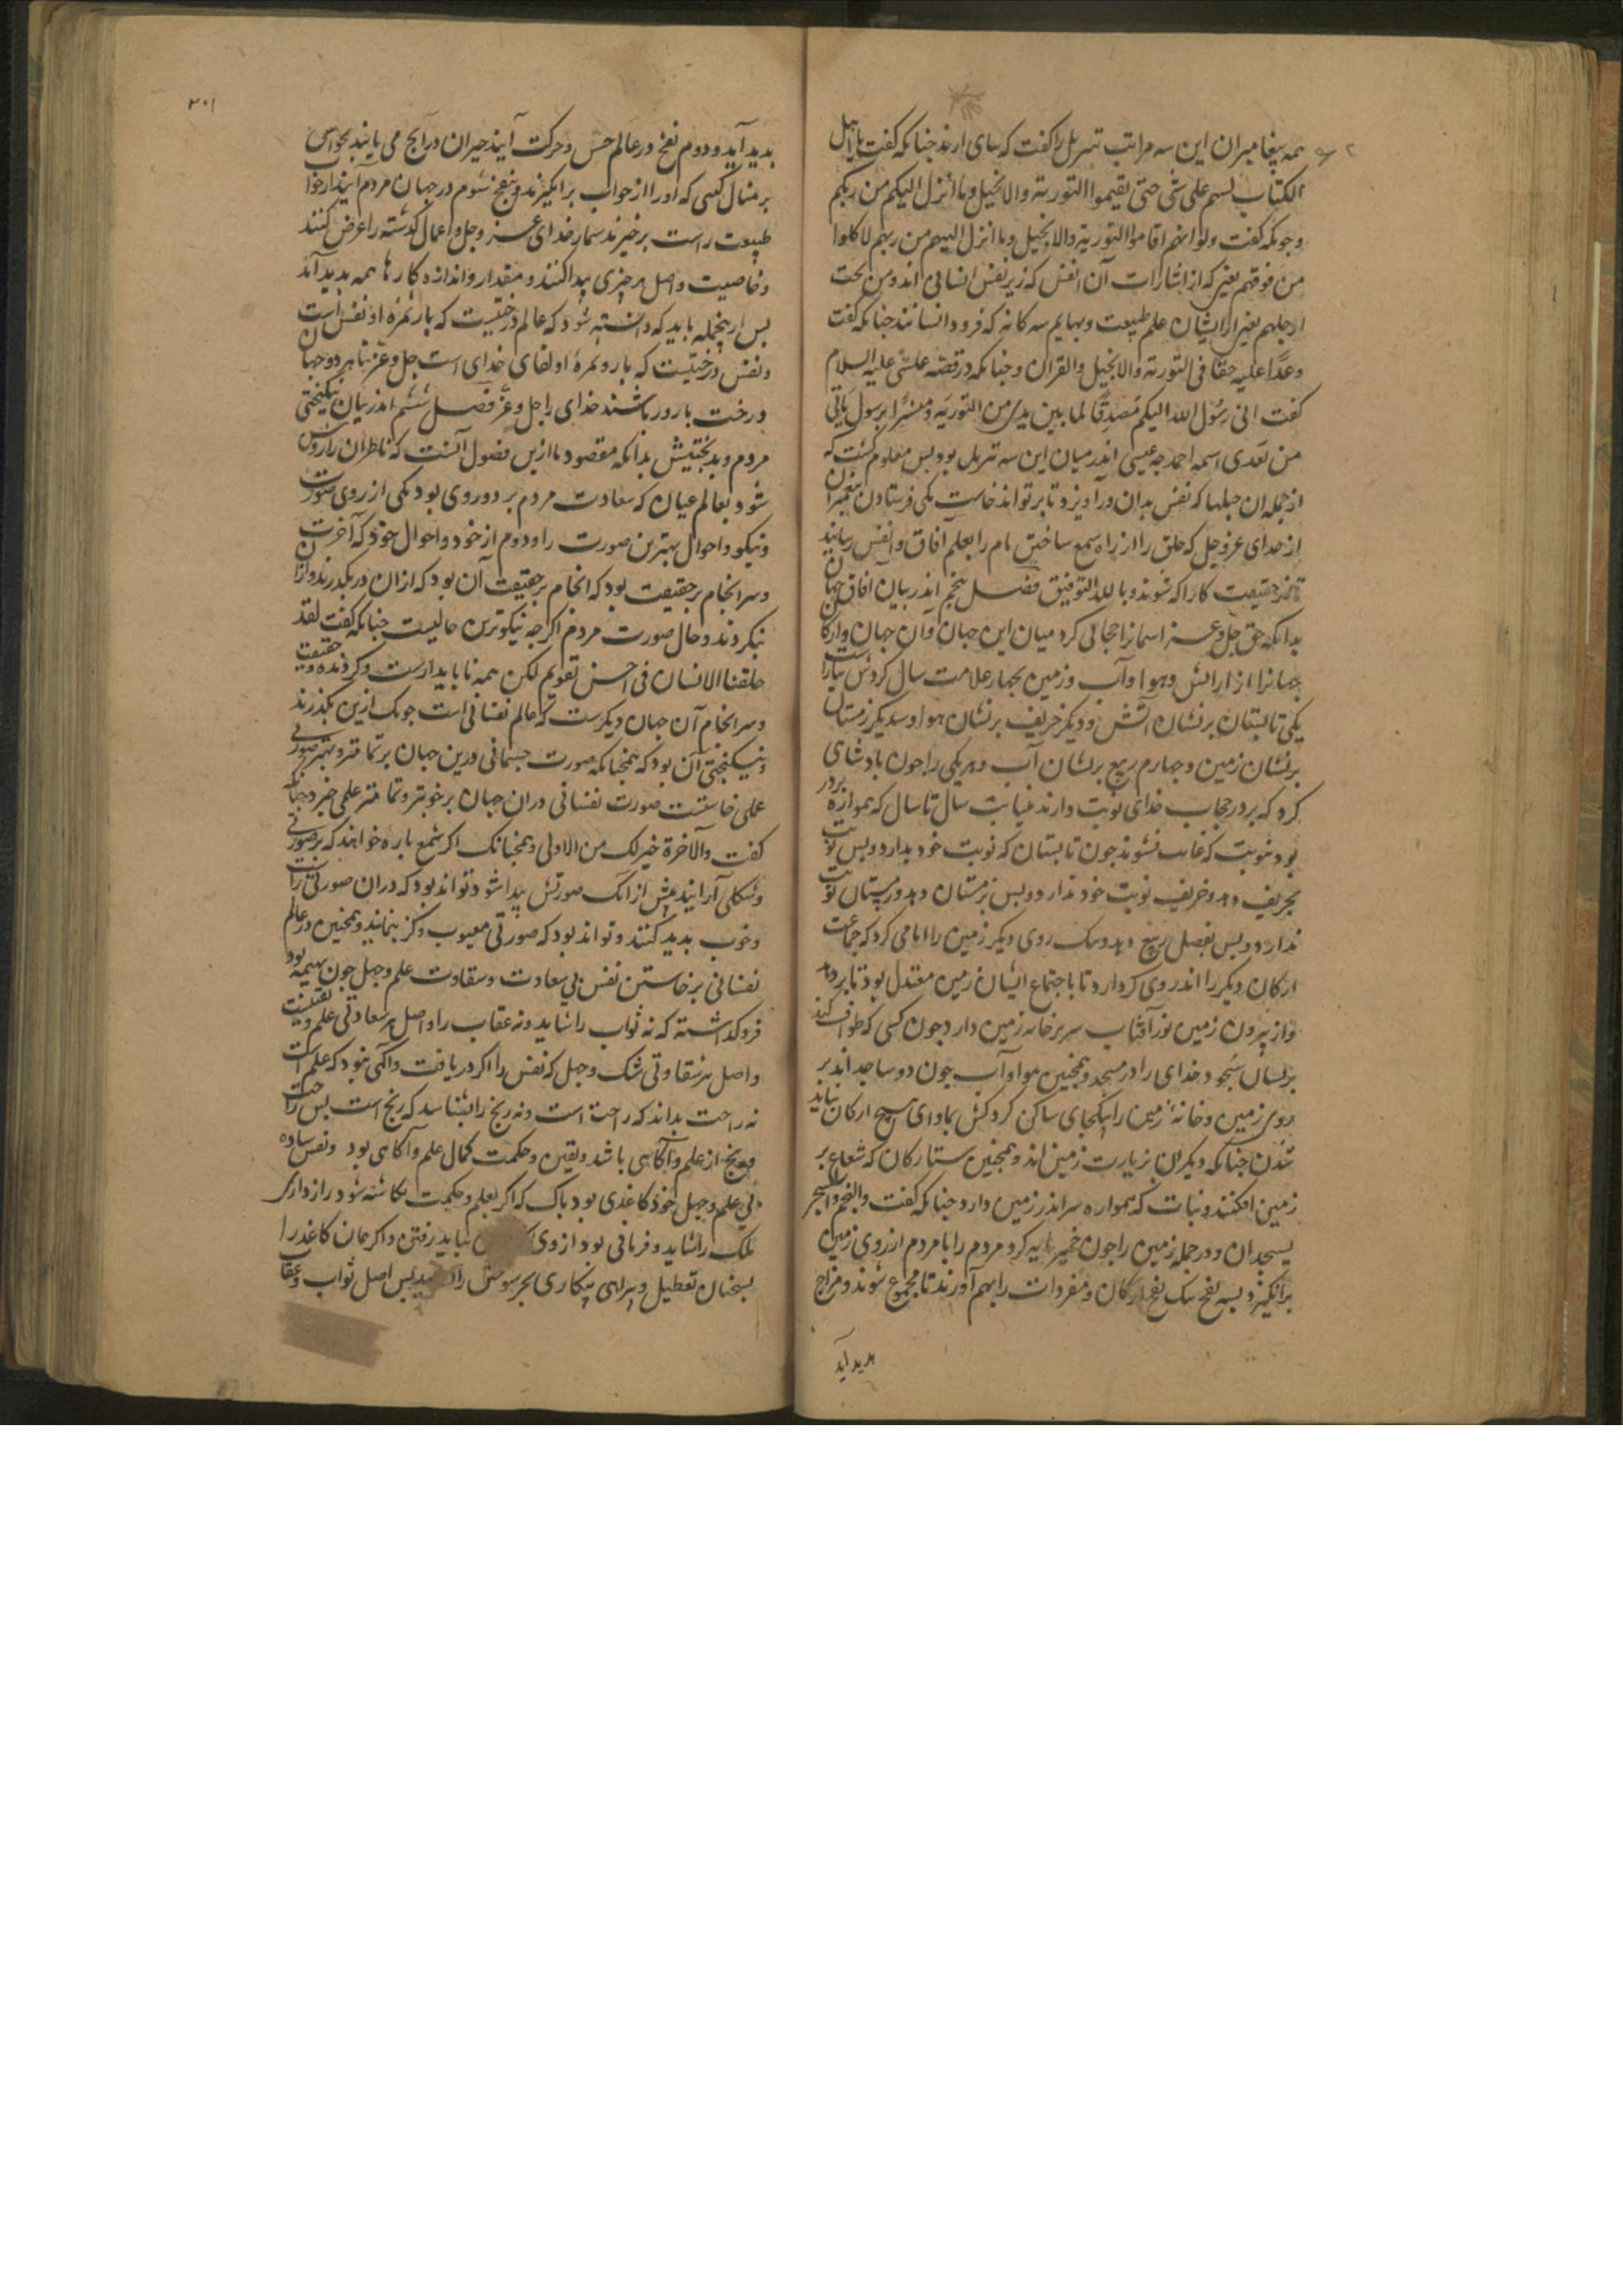 همه پیغامبران این سه مراتب تنزیل را گفت که بپای ارند چنانکه گفت یا اهل
الکتاب لستم علی شی حتی تقیموا التوریة والانجیل وما انزل الیکم من ربکم
وچونکه گفت ولو انهم اقاموا التوریة والانجیل وما انزل الیهم من ربهم لاکلوا
من فوقهم یعنی که از اشارات آن انفس که زیر نفس انسانی اند ومن تحت
ارجلهم یعنی از ایشان علم طبیعت وبهایم سه کانه که فرود انسانند چنانکه گفت
وعدا علیه حقا فی التوریة والانجیل والقران وچنانکه در قصه عیسی علیه السلام
گفت انی رسول الله الیکم مصدقا لما بین یدی من التوریة ومبشرا برسول یاتی
من بعدی اسمه احمد چه عیسی اندر میان این سه تنزیل بود پس معلوم گشت که
از جمله ان حبلها که نفس بدان دراویزد تا برتواند خاست یکی فرستادن پیغمبران
از خدای عزوجل که خلق را از راه سمع ساختن نام را بعلم آفاق وانفس رسانید
حقیقت کار اکه شوند وبالله التوفیق فصل پنجم اندر بیان آفاق جهان
بدانکه حق جل وعز اسمانرا حجابی کرد میان این جهان وان جهان وارکان
جهانرا از ارایش وهوا وآب وزمین بچهار علامت سال گردش
یکی تابستان برنشان آتش ودیگر خریف برنشان هوا وسدیگر زمستان
برنشان زمین وچهارم ربیع برنشان آب وهریکی را چون پادشای
کرد که بردر حجاب خدای نوبت دارند سال تا سال که همواره بردر
بود بنوبت که غایب نشوند چون تابستان که نوبت خود بدارد وپس نوبت
بخریف دهد وخریف نوبت خود بدارد وپس بزمستان دهد وزمستان نوبت
بدارد وپس بفصل ربیع دهد ویک روی دیگر زمین را امامی کرد که جماعت
ارکان دیگر را اندر روی کردارد تا باجتماع ایشان زمین معتدل بود تا بردهد
واز بیرون زمین نور آفتاب سر بر خانه زمین دارد چون کسی که طواف کند
برلسان سجود خدای را در مسجد وهمچنین هوا وآب چون دو ساجد اند بر
روی زمین وخانه زمین را بیکجای ساکن کرد کش بماوای هیچ ارکان نباید
شدن چنانکه دیگران بزیارت زمین اند وهمچنین ستارکان که شعاع بر
زمین افکنند ونبات که همواره سر اندر زمین دارد چنانکه گفت والنجم والشجر
یسجدان ودر جمله زمین را چون خمیر مایه کرد مردم را تا مردم از روی زمین
برانگیزد وبسه نفخ یک نفخ ارکان ومفردات را بهم آورند تا مجموع شوند ومزاج
بدید آید
۳۰۱
بدید آید ودوم نفخ در عالم حس وحرکت آیند حیران درآنچ می یابند بحواس
برمثال کسی که اورا از خواب برانگیزند ونفخ سوم در جهان مردم آیند از خواب
طبیعت راست برخیزند شمار خدای عز وجل واعمال گذشته را عرض کنند
وخاصیت واصل هر چیزی پیدا کنند ومقدار واندازه کارها همه بدید آید
پس ازینجمله باید که دانسته شود که عالم درختیست که بار وثمره او نفس است
ونفس درختیست که بار وثمره او لقای خدای است جل وعز تا هر دو جهان
درخت بارور باشند خدای را جل وعز فصل ششم اندر بیان نیکبختی
مردم وبدبختیش بدانکه مقصود ما ازین فصول آنست که ناظران را روشن
شود بعالم عیان که سعادت مردم بر دو روی بود یکی از روی صورت
ونیکو واحوال بهترین صورت را ودوم از خود واحوال خود که آخرت
وسرانجام بر حقیقت بود که انجام بر حقیقت آن بود که ازان در نگذرند وازان
نگردند وحال صورت مردم اگرچه نیکوترین حالیست چنانکه گفت لقد
خلقنا الانسان فی احسن تقویم لکن همه ناپایدارست وگردنده وحقیقت
وسرانجام آن جهان دیگرست که عالم نفسانی است چونک ازین بگذرند
ونیکبختی آن بود که همچنانکه صورت جسمانی درین جهان برتمامتر وبهتر صورتی
عملی خاستست صورت نفسانی دران جهان برخوبتر وتمامتر علمی خیزد چنانکه
گفت والآخرة خیر لک من الاولی وهمچنانک اگر شمع پاره خواهند که بر صورتی
وشکلی آرایند پیش ازانک صورتش پیدا شود تواند بود که دران صورتی راست
وخوب بدید کنند وتواند بود که صورتی معیوب وکژ بنمایند وهمچنین در عالم
نفسانی برخاستن نفس بی سعادت وشقاوت علم وجهل چون بهیمه بود
فروگذاشته که نه ثواب را شاید ونه عقاب را واصل هر سعادتی علم ویقینست
واصل هر شقاوتی شک وجهل که نفس را اگر دریافت وآگهی نبود که علم است
نه راحت بداند که راحت است ونه رنج را بشناسد که رنج است پس راحت
ورنج از علم وآگاهی باشد ویقین وحکمت کمال علم وآگاهی بود ونفس ساده
بی علم وجهل خود کاغذی بود پاک که اگر بعلم وحکمت نگاشته شود راز داری
ملک را شاید وفرمانی بود از وی نباید رفتن واگر همان کاغذ را
بسخنان تعطیل وبیراهی بنگاری بجز سوختن را پس اصل ثواب وعقاب